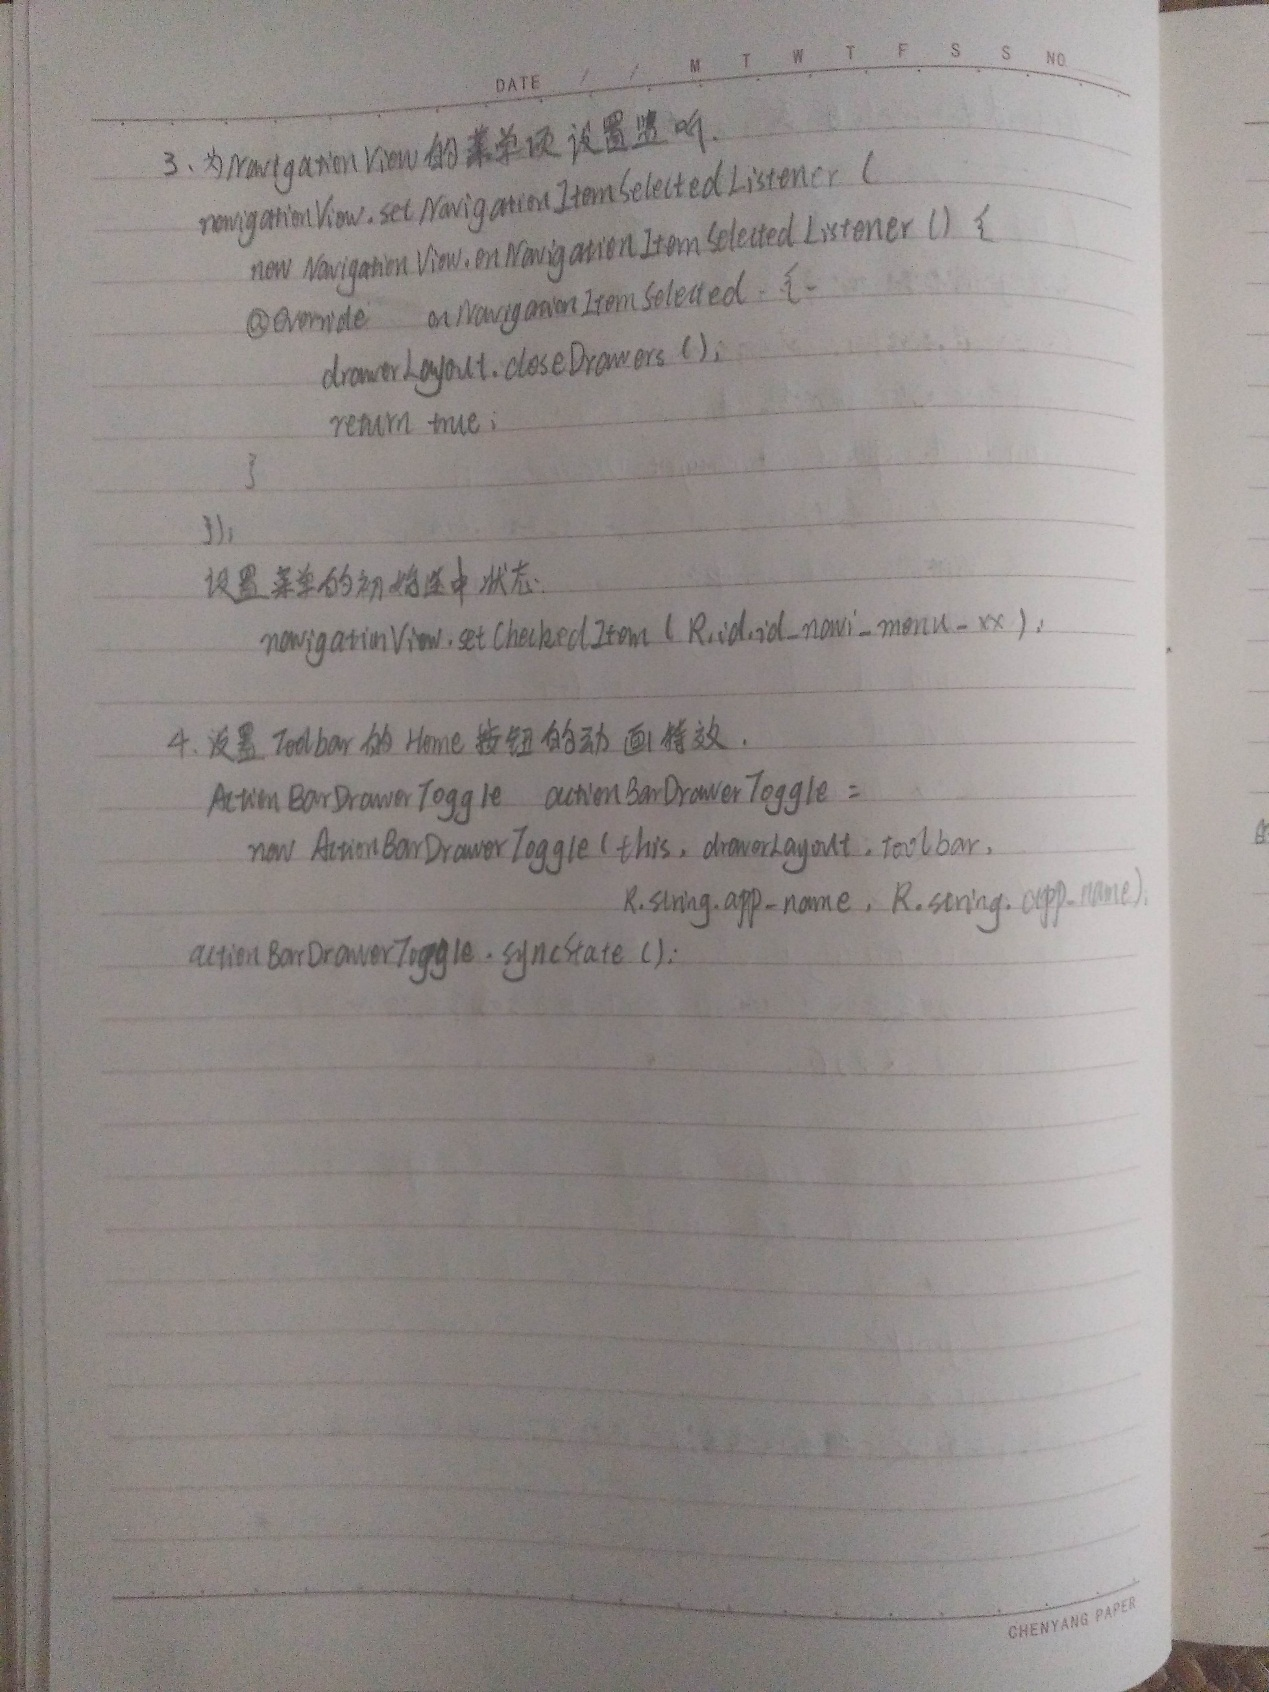 DATE / / M T W T F S S NO
3、为NavigationView的菜单项设置监听.
navigationView.setNavigationItemSelectedListener (
new NavigationView.onNavigationItemSelectedListener () {
@Override onNavigationItemSelected - {-
drawerLayout.closeDrawers ();
return true;
}
});
设置菜单的初始选中状态:
navigationView.setCheckedItem ( R.id.id_navi_menu_xx );
4、设置Toolbar的Home按钮的动画特效.
ActionBarDrawerToggle actionBarDrawerToggle =
new ActionBarDrawerToggle (this, drawerLayout, toolbar,
R.string.app_name, R.string.app_name);
actionBarDrawerToggle.syncState ();
CHENYANG PAPER